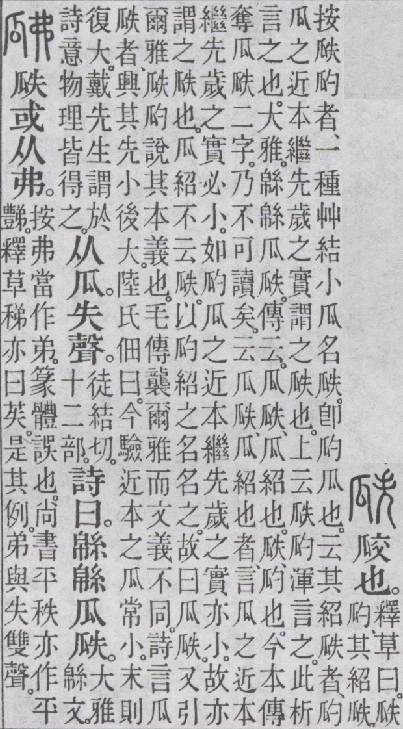 瓞 㼎也。釋草曰。瓞瓝。其紹瓞。
按瓞瓝者、一種艸結小瓜名瓞。卽瓝瓜也。云其紹瓞者。瓝
瓜之近本繼先歲之實謂之瓞也。上云瓞瓝渾言之。此析
言之也。大雅。緜緜瓜瓞。傳云。瓜瓞、瓜紹也。瓞、瓝也。今本傳
奪瓜瓞二字。乃不可讀矣。云瓜瓞、瓜紹也者、言瓜之近本
繼先歲之實必小。如瓝瓜之近本繼先歲之實亦小。故亦
謂之瓞也。瓜紹不云瓞。以瓝紹之名名之。故曰瓜瓞。又引
爾雅瓞瓝說其本義也。毛傳襲爾雅而文義不同。詩言瓜
瓞者、興其先小後大。陸氏佃曰。今驗近本之瓜常小。末則
復大。戴先生謂於詩意物理皆得之。从瓜。失聲。徒結切。十二部。詩曰。緜緜瓜瓞。大雅緜文。
瓞或从弗。按弗當作弟。篆體誤也。尚書平秩亦作平豑。釋草稊亦曰苵。是其例。弟與失雙聲。